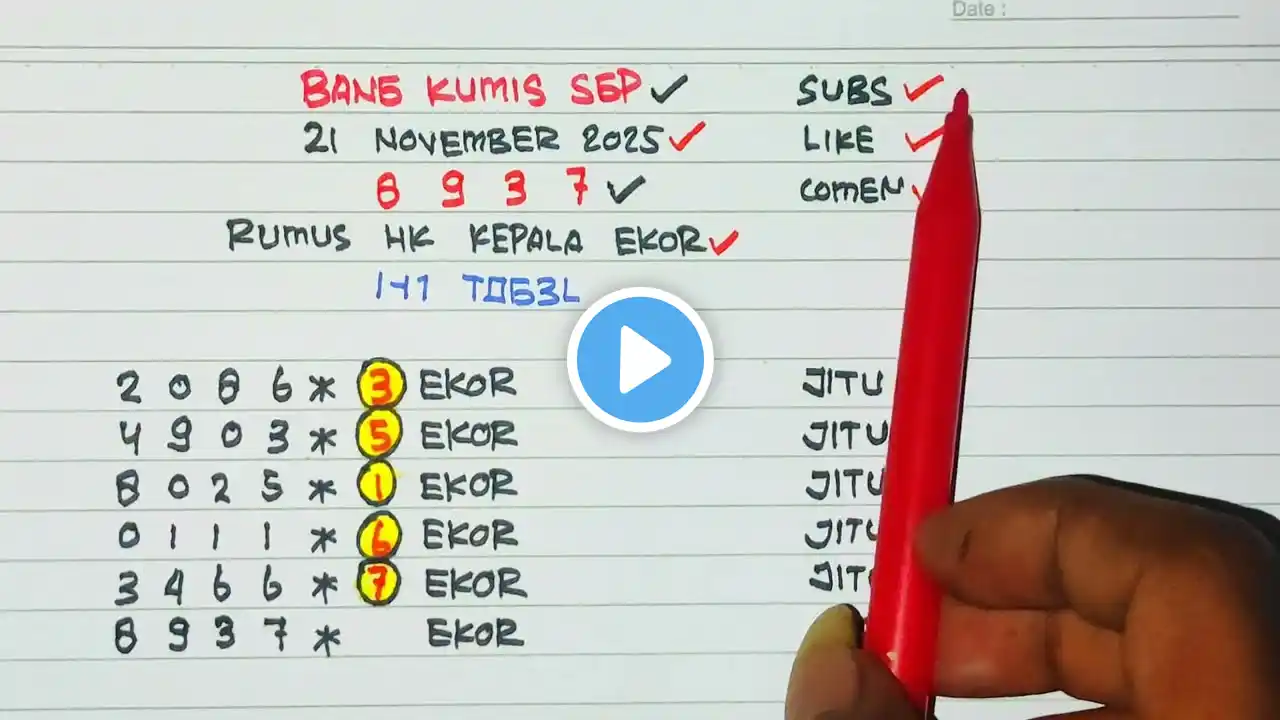 Date :
BANG KUMIS SGP ✓ SUBS ✓
21 NOVEMBER 2025 ✓ LIKE ✓
8 9 3 7 ✓ COMEN ✓
RUMUS HK KEPALA EKOR ✓
2 0 8 6 * 3 EKOR JITU
4 9 0 3 * 5 EKOR JITU
8 0 2 5 * 1 EKOR JITU
0 1 1 1 * 6 EKOR JITU
3 4 6 6 * 7 EKOR JIT
8 9 3 7 * EKOR